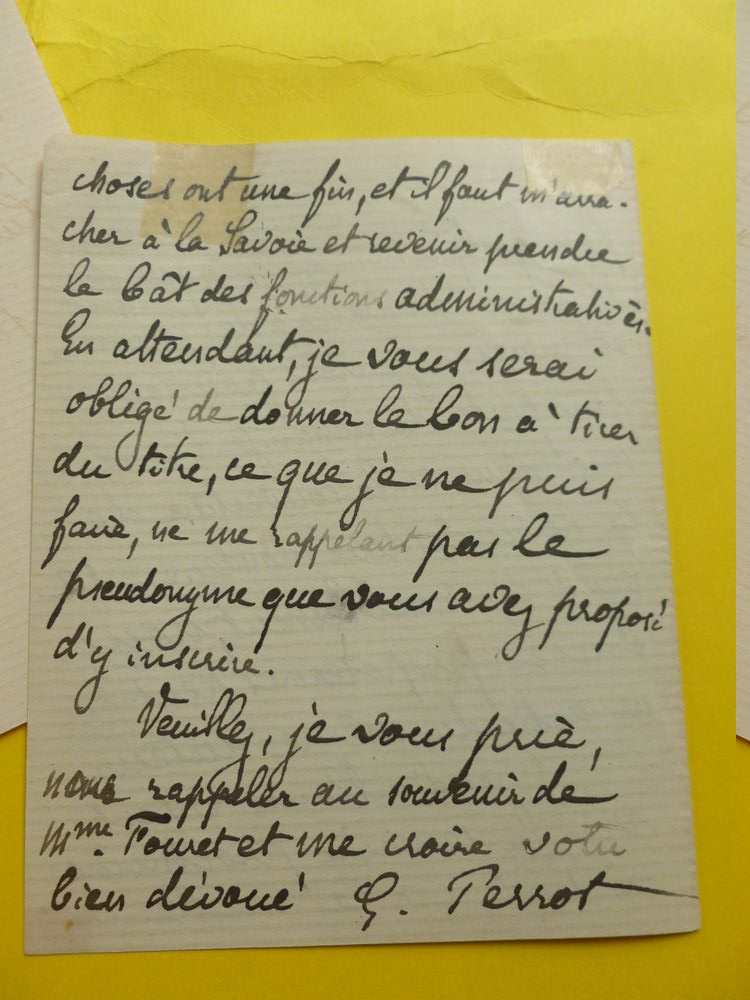 choses ont une fin, et il faut m'arra-
cher à la Savoie et revenir prendre
le bât des fonctions administratives.
En attendant, je vous serai
obligé de donner le bon à tirer
du titre, ce que je ne puis
faire, ne me rappelant pas le
pseudonyme que vous avez proposé
d'y inscrire.
Veuillez, je vous prie,
nous rappeler au souvenir de
Mme. Fouret et me croire votre
bien dévoué G. Perrot